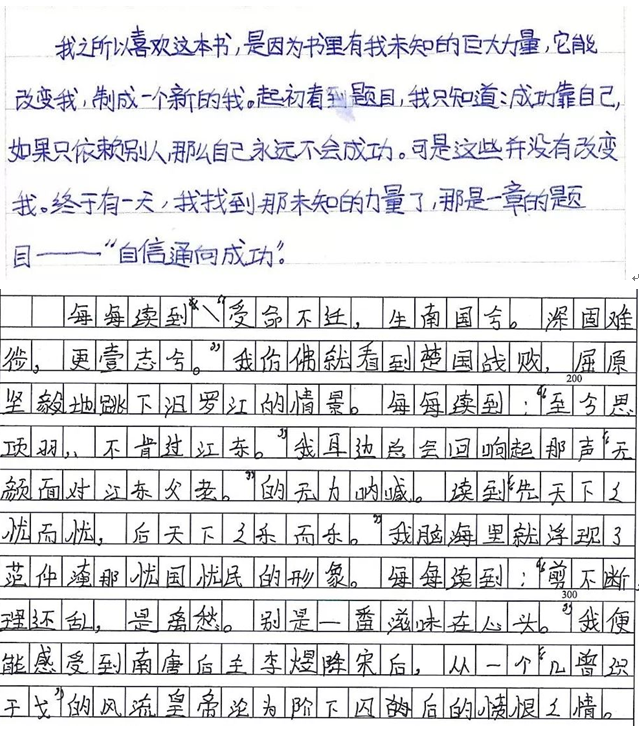 我之所以喜欢这本书,是因为书里有我未知的巨大力量,它能
改变我,制成一个新的我。起初看到题目,我只知道:成功靠自己,
如果只依赖别人,那么自己永远不会成功。可是这些并没有改变
我。终于有一天,我找到那未知的力量了,那是一章的题
目——“自信通向成功”。
每每读到“受命不迁,生南国兮。深固难
徙,更壹志兮。”我仿佛就看到楚国战败,屈原
200
坚毅地跳下汨罗江的情景。每每读到:“至今思
项羽,不肯过江东。”我耳边总会回响起那声“无
颜面对江东父老。”的无力呐喊。读到“先天下之
忧而忧,后天下之乐而乐。”我脑海里就浮现了
范仲淹那忧国忧民的形象。每每读到:“剪不断,
300
理还乱,是离愁。别是一番滋味在心头。”我便
能感受到南唐后主李煜降宋后,从一个“几曾识
干戈”的风流皇帝沦为阶下囚的后的愤恨之情。